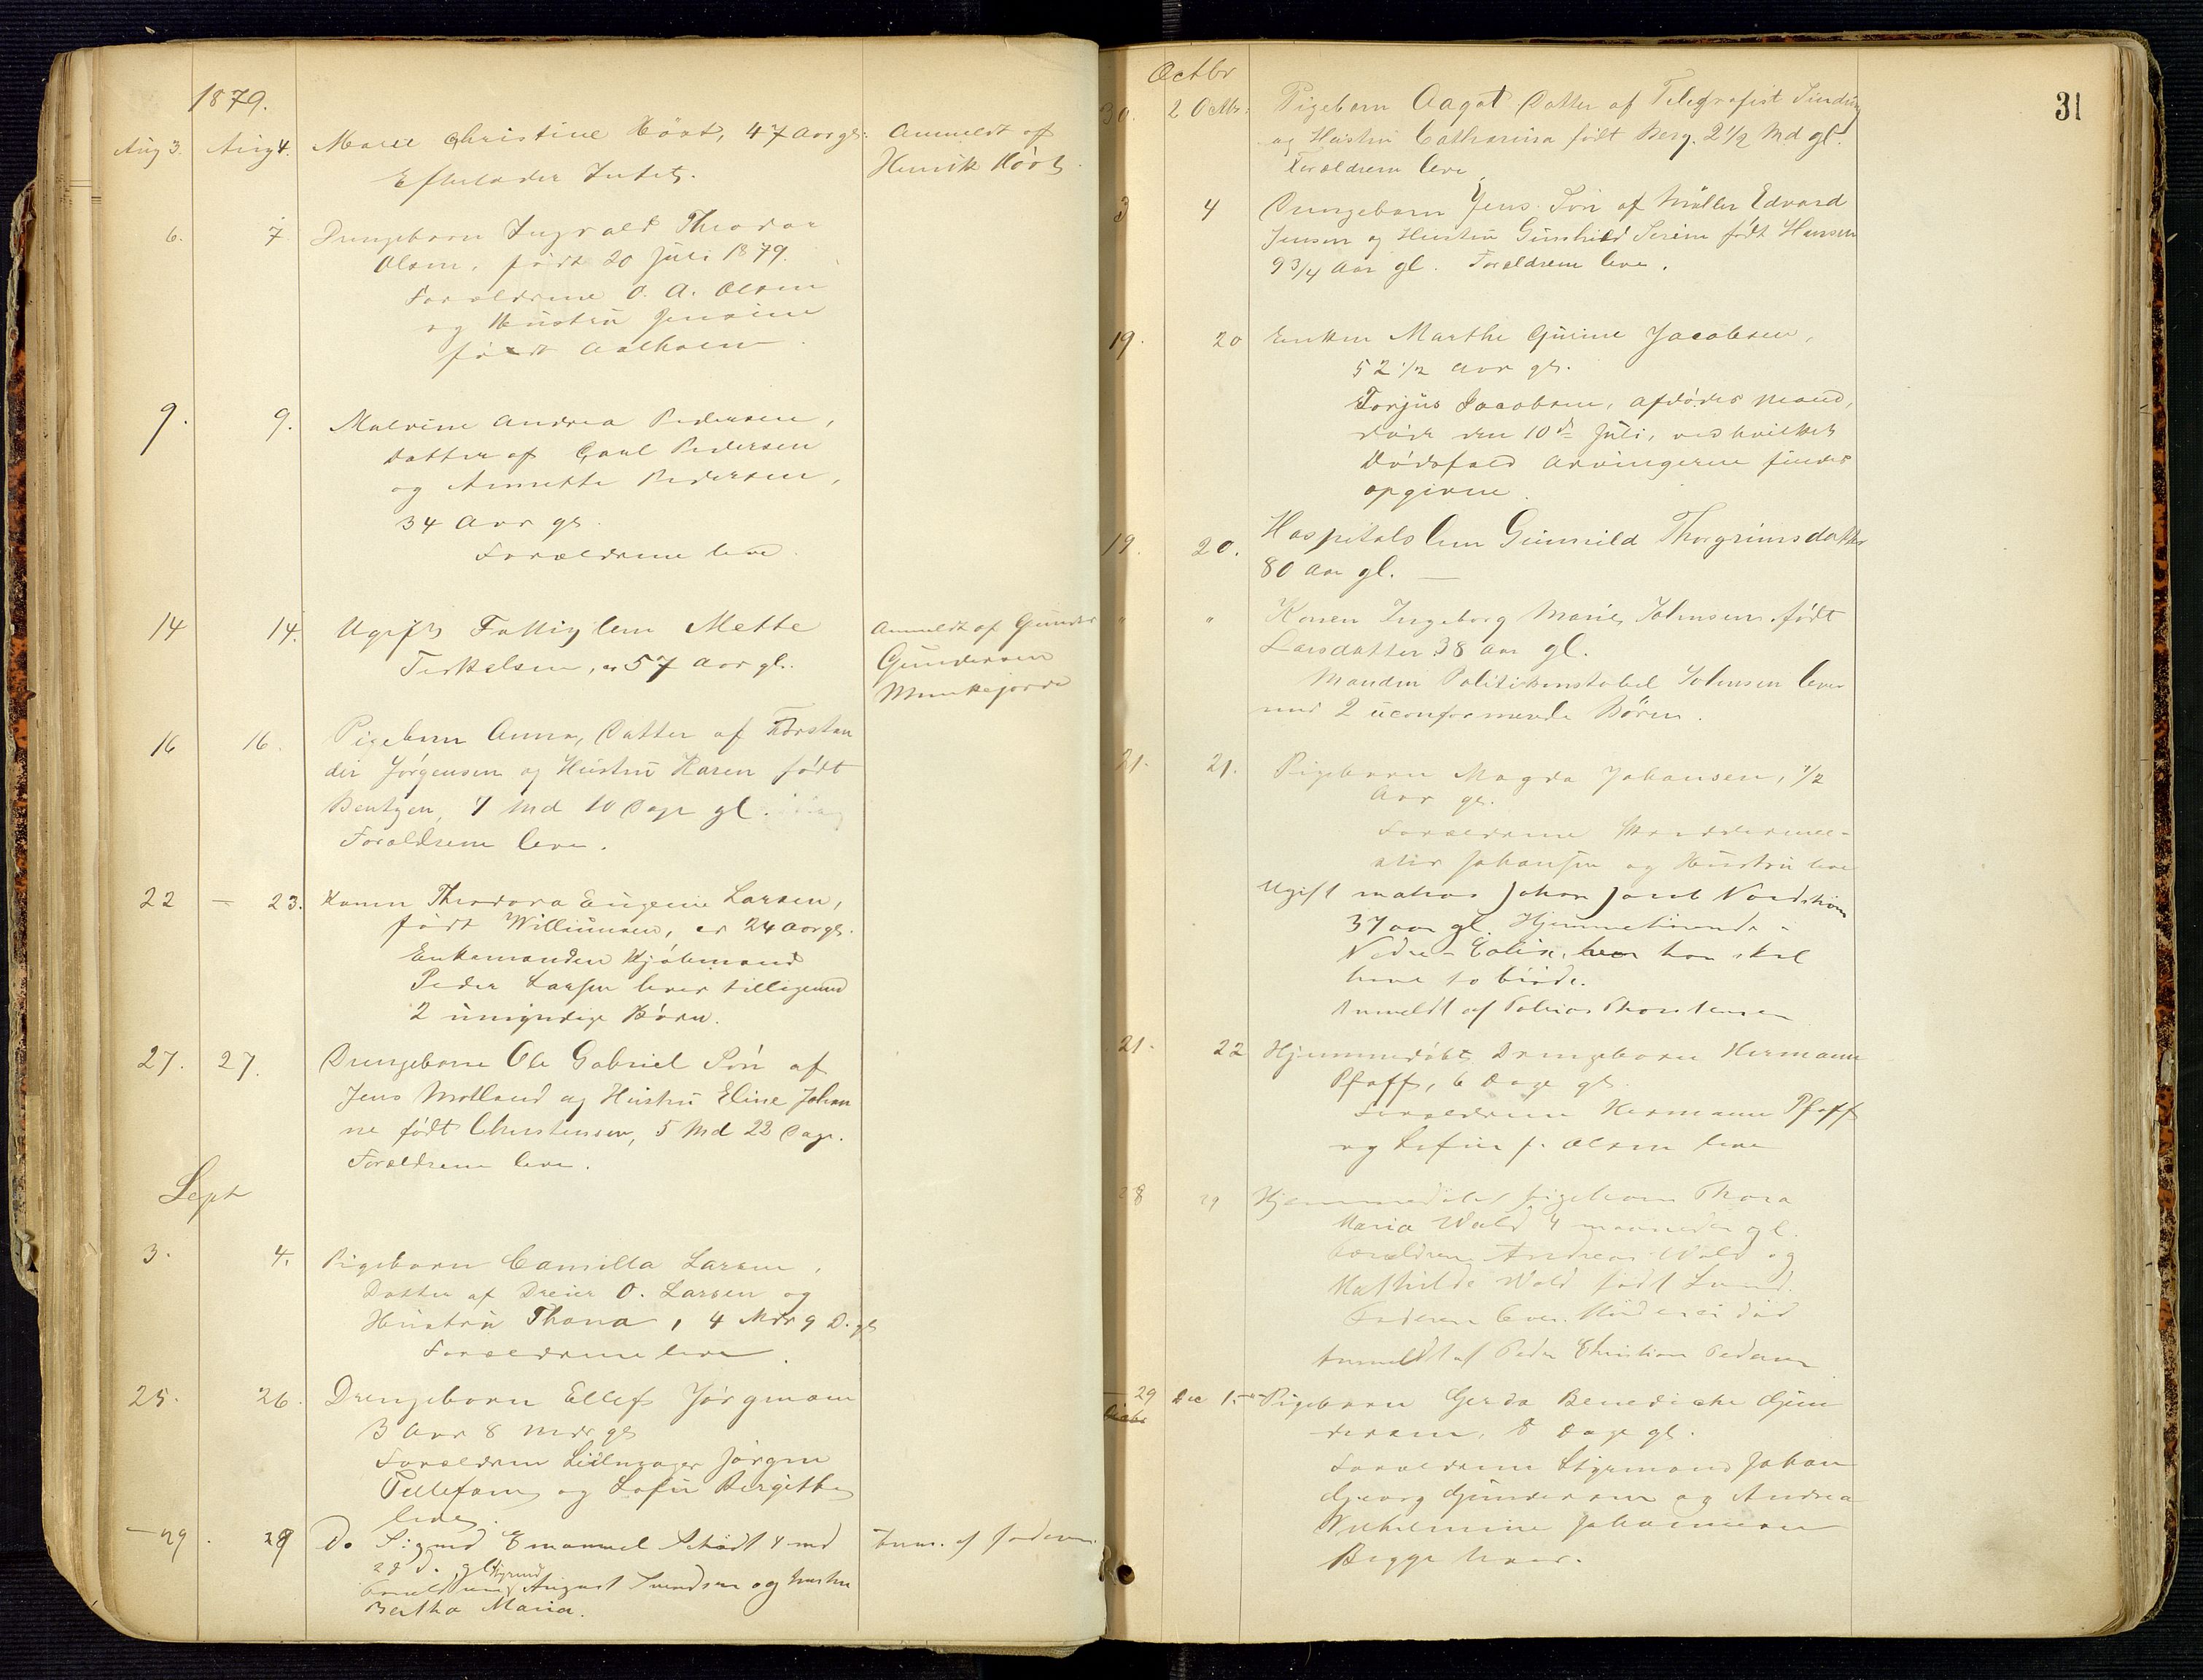 1879.
Aug 3. Aug 4. Maren Christine Höst, 47 Aar gl. Anmeldt af
Henrik Höst
Efterlader Intet.
6. 7. Drengebarn Ingvald Theodor
Olsen, födt 20 Juli 1879.
Forældrene O. A. Olsen
og Hustru Jensine
födt Aalholm.
9. 9. Malvine Andrea Pedersen,
Datter af Carl Pedersen
og Annette Pedersen,
34 Aar gl.
Forældrene leve.
14 14. Ugift Fattiglem Mette
Terkelsen, 57 Aar gl.
Anmeldt af Gunder
Gundersen
Munkejorde
16 16. Pigebarn Anna, Datter af Forstan
der Jörgensen og Hustru Karen födt
Bentzen, 7 Md 10 Dage gl.
Forældrene leve.
22 — 23. Konen Theodora Eugenie Larsen,
födt Williumsen, 24 Aar gl.
Enkemanden Kjöbmand
Peder Larsen lever tilligemed
2 umyndige Börn.
27. 27. Drengebarn Ole Gabriel Sön af
Jens Motland og Hustru Eline Johan
ne födt Christensen, 5 Md 22 Dage.
Forældrene leve.
Sept
3. 4. Pigebarn Camilla Larsen,
Datter af Dreier O. Larsen og
Hustru Thona, 4 Mdr 9 D. gl
Forældrene leve.
25. 26. Drengebarn Ellef Jörgensen
3 Aar 8 Mdr gl
Forældrene Jörgen
Tellefsen og Sofie Bergithe
leve.
— 29. 29 Do Sigurd Emanuel 4 md
28 d. gl
Forældrene August Svendsen og hustru
Bertha Maria.
Anm. af faderen.
31
Octbr
30. 2 Octbr. Pigebarn Aagot Datter af Telegrafist Sinding
og Hustru Catharina födt Berg. 2 1/2 Md gl.
Forældrene leve.
3 4 Drengebarn Jens Sön af Möller Edvard
Jensen og Hustru Gunhild Serine födt Hansen
9 3/4 Aar gl. Forældrene leve.
19. 20 Enken Marthe Gurine Jacobsen,
52 1/2 Aar gl.
Torjus Jacobsen, afdödes Mand,
döde den 10de Juli, ved hvilket
Dödsfald Arvingerne findes
opgivne.
19. 20. Hospitalslem Gunnild Thorgrimsdatter
80 Aar gl. —
" " Konen Ingeborg Marie Johnsen födt
Larsdatter 38 Aar gl.
Manden Politikonstabel Johnsen lever
med 2 uconfirmerede Börn.
21. 21. Pigebarn Magda Johansen, 1/2
Aar gl.
Forældrene
Johansen og Hustru leve
Ugift matros Johan Jacob Nordström
37 aar gl. Hjemmehörende i
Nedre-Calix, hvor han skal
have to brödre.
Anmeldt af Tobias Thorstensen
21. 22 Hjemmedöbt Drengebarn Hermann
Pfaff, 6 Dage gl.
Forældrene Hermann Pfaff
og Sofie f. Olsen leve
28 29 Hjemmedöbt pigebarn Thora
Maria Wold 4 maaneder gl.
Forældrene Andreas Wold og
Mathilde Wold födt Lund.
Faderen lever. Moderen er död
Anmeldt af Peder Christian Pedersen
— 29 Dec 1. Pigebarn Gerda Benedicte Gun
dersen, 8 Dage gl.
Forældrene Styrmand Johan
Georg Gundersen og Andrea
Wilhelmine Johannesen
Begge lever.